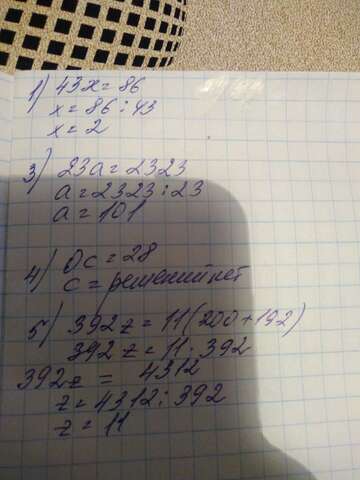 1) 43x = 86
x = 86 : 43
x = 2
3) 23a = 2323
a = 2323 : 23
a = 101
4) 0c = 28
c = решений нет
5) 392z = 11(200+192)
392z = 11 · 392
392z = 4312
z = 4312 : 392
z = 11